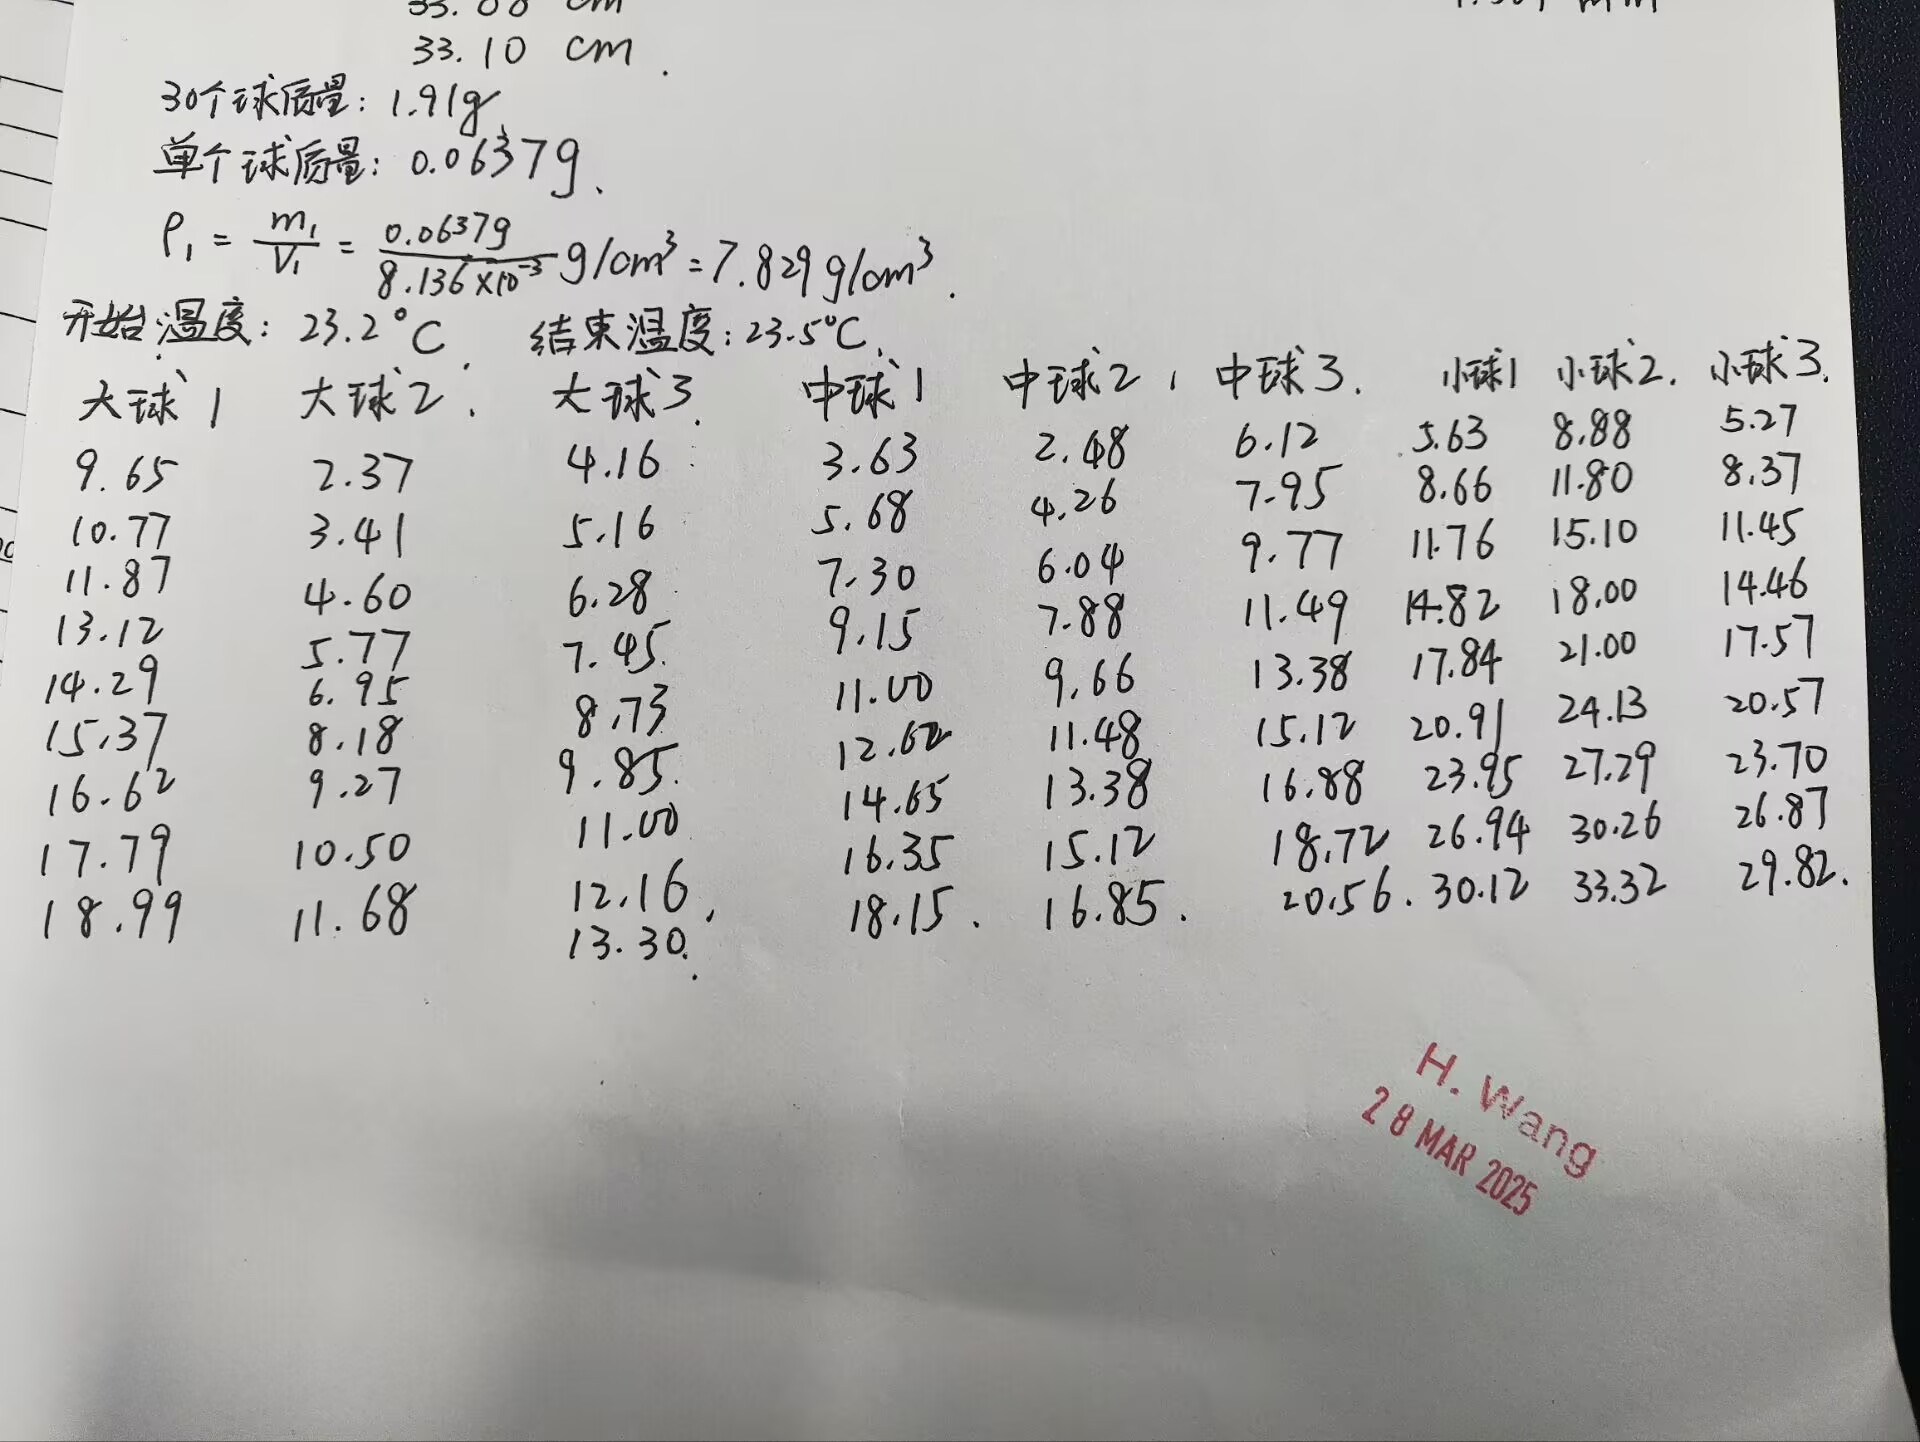 33.08 cm
33.10 cm.
30个球质量: 1.91g
单个球质量: 0.0637g.
ρ₁ = m₁/V₁ = 0.0637g/8.136×10⁻³ g/cm³ = 7.829g/cm³.
开始温度: 23.2°C. 结束温度: 23.5°C.
大球1 大球2. 大球3. 中球1 中球2, 中球3. 小球1 小球2. 小球3.
9.65 2.37 4.16 3.63 2.48 6.12 5.63 8.88 5.27
10.77 3.41 5.16 5.68 4.26 7.95 8.66 11.80 8.37
11.87 4.60 6.28 7.30 6.04 9.77 11.76 15.10 11.45
13.12 5.77 7.45. 9.15 7.88 11.49 14.82 18.00 14.46
14.29 6.95 8.73 11.00 9.66 13.38 17.84 21.00 17.57
15.37 8.18 9.85. 12.62 11.48 15.12 20.91 24.13 20.57
16.62 9.27 11.00 14.65 13.38 16.88 23.95 27.29 23.70
17.79 10.50 12.16, 16.35 15.12 18.72 26.94 30.26 26.87
18.99 11.68 13.30. 18.15. 16.85. 20.56. 30.12 33.32 29.82.
H. Wang
28 MAR 2025